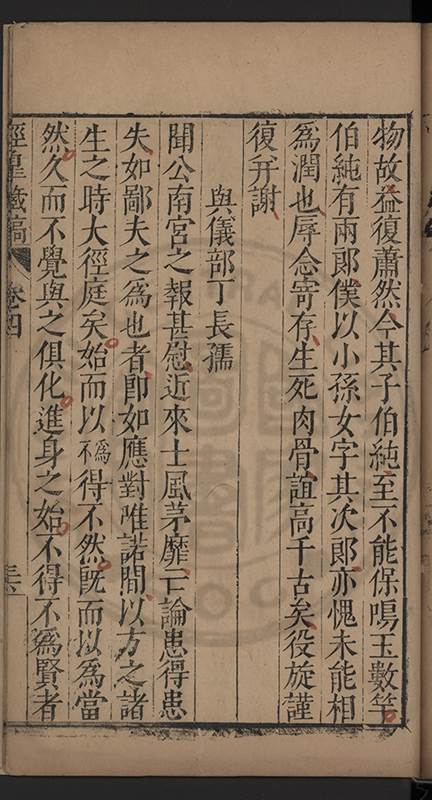 物故益復蕭然今其子伯純至不能保喝玉數竿
伯純有兩郎僕以小孫女字其次郎亦愧未能相
爲潤也辱念寄存生死肉骨誼高千古矣役旋謹
復并謝
與儀部丁長孺
聞公南宮之報甚慰近來士風茅靡亡論患得患
失如鄙夫之爲也者卽如應對唯諾間以方之諸
生之時大徑庭矣始而以爲不得不然旣而以爲當
然久而不覺與之俱化進身之始不得不爲賢者
卷四